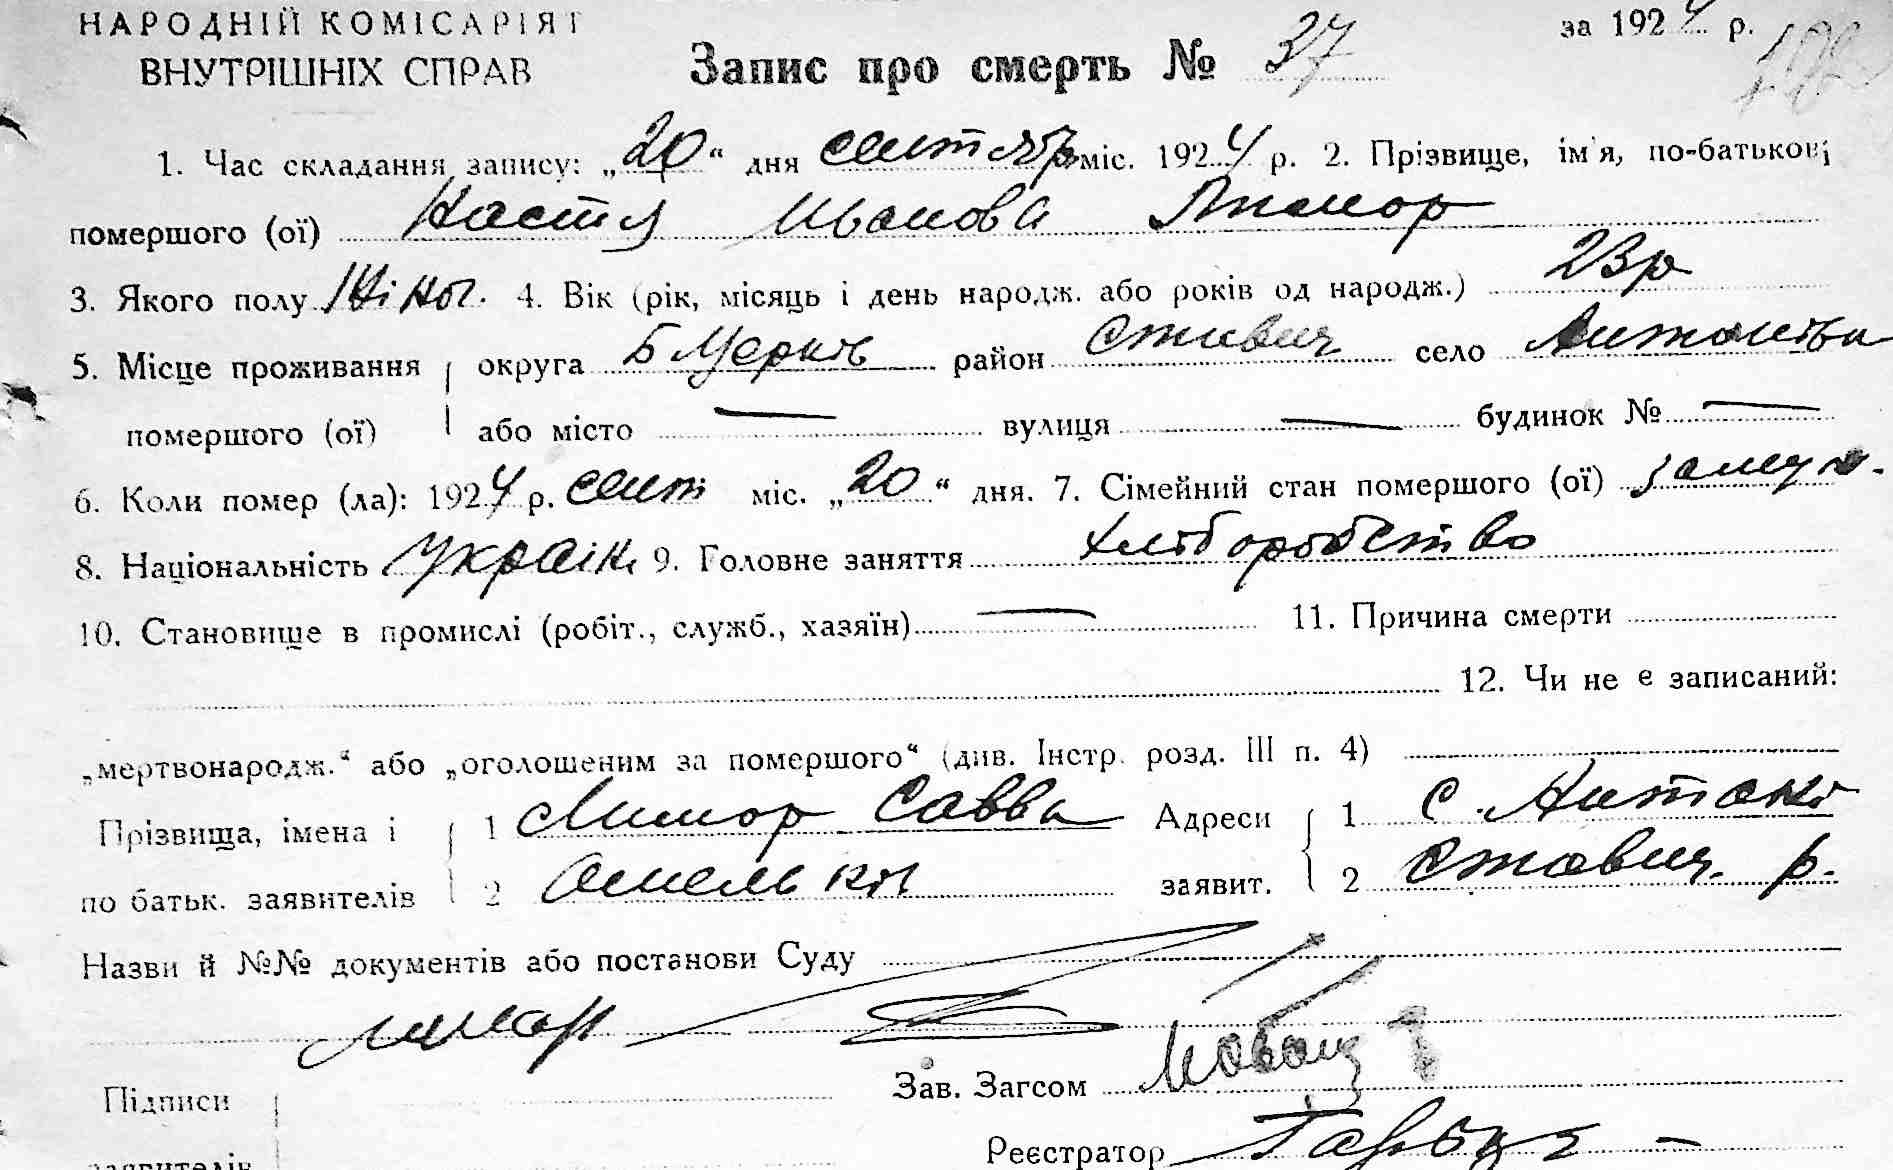 НАРОДНІЙ КОМІСАРІЯТ
ВНУТРІШНІХ СПРАВ
за 1924 р.
Запис про смерть № 37
1. Час складання запису: „20“ дня сентяб міс. 1924 р. 2. Прізвище, ім'я, по-батькові
помершого (ої) Настя Иванова
3. Якого полу жіноч. 4. Вік (рік, місяць і день народж. або років од народж.) 23 р
5. Місце проживання { округа Б Церків район Ставищ село
помершого (ої) або місто — вулиця — будинок № —
6. Коли помер (ла): 1924 р. сент міс. „20“ дня. 7. Сімейний стан помершого (ої) замуж.
8. Національність україн 9. Головне заняття хліборобство
10. Становище в промислі (робіт., служб., хазяїн) — 11. Причина смерти
12. Чи не є записаний:
„мертвонародж.“ або „оголошеним за помершого“ (див. Інстр. розд. III п. 4)
Прізвища, імена і { 1 Савва Адреси { 1 с.
по батьк. заявителів 2 заявит. 2 Ставищ. р.
Назви й №№ документів або постанови Суду
Зав. Загсом
Підписи
Реєстратор
заявителів